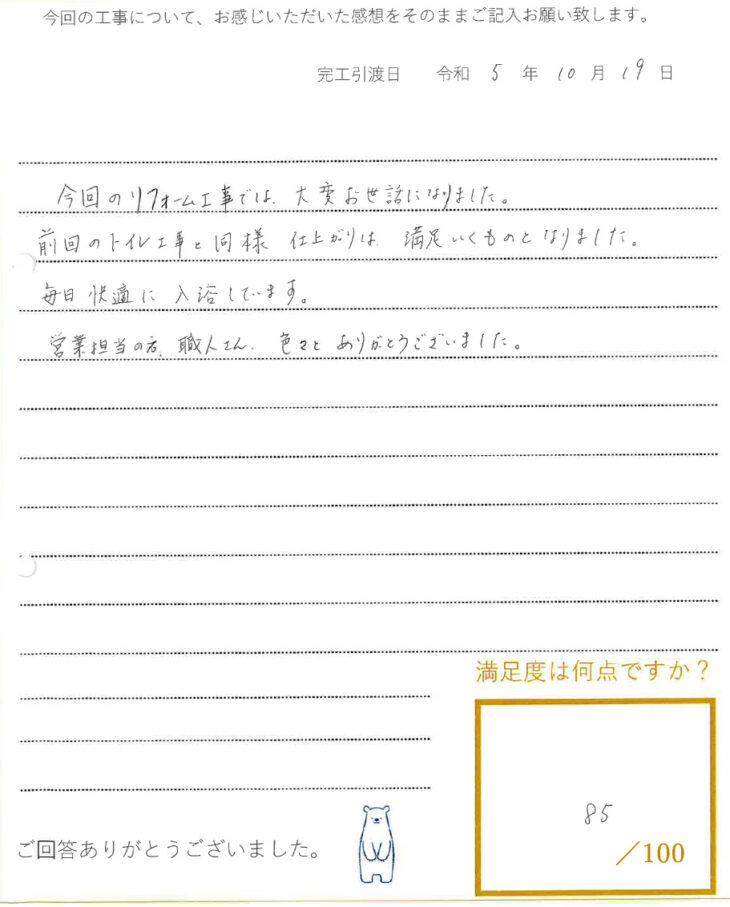 今回の工事について、お感じいただいた感想をそのままご記入お願い致します。
完工引渡日 令和 5 年 10 月 19 日
今回のリフォーム工事では、大変お世話になりました。
前回のトイレ工事と同様 仕上がりは 満足いくものとなりました。
毎日 快適に 入浴しています。
営業担当の方、職人さん、色々と ありがとうございました。
満足度は何点ですか？
85
／100
ご回答ありがとうございました。